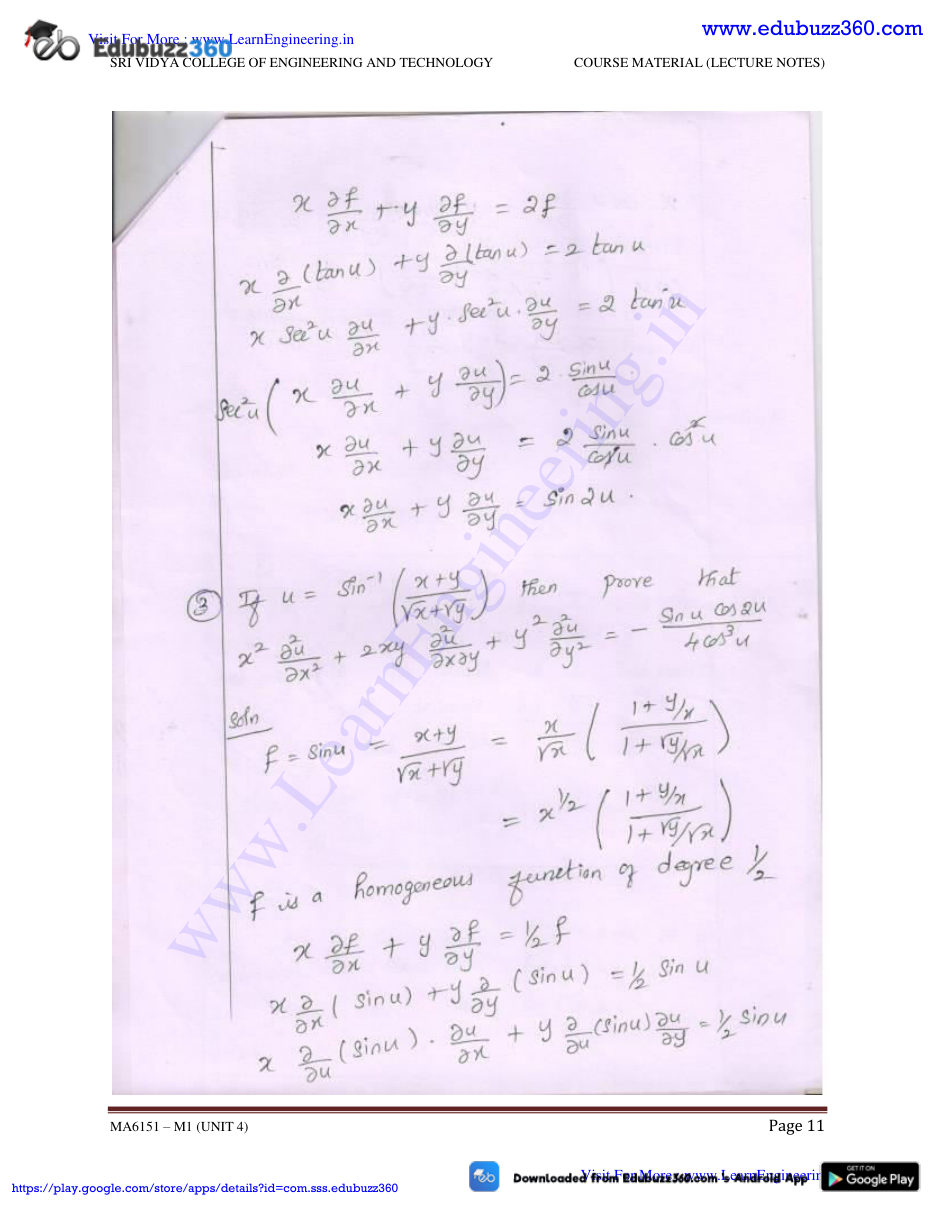 www.edubuzz360.com
Visit For More : www.LearnEngineering.in
Edubuzz360
SRI VIDYA COLLEGE OF ENGINEERING AND TECHNOLOGY COURSE MATERIAL (LECTURE NOTES)
x ∂f/∂x + y ∂f/∂y = 2f
x ∂/∂x (tan u) + y ∂/∂y (tan u) = 2 tan u
x sec²u ∂u/∂x + y · sec²u · ∂u/∂y = 2 tan u
sec²u ( x ∂u/∂x + y ∂u/∂y ) = 2 · sin u / cos u
x ∂u/∂x + y ∂u/∂y = 2 sin u / cos u · cos² u
x ∂u/∂x + y ∂u/∂y = sin 2u .
③ If u = sin⁻¹ ( (x+y) / (√x+√y) ) then prove that
x² ∂²u/∂x² + 2xy ∂²u/∂x∂y + y² ∂²u/∂y² = - sin u cos 2u / 4 cos³ u
Soln
f = sin u = (x+y) / (√x+√y) = x/√x ( (1 + y/x) / (1 + √y/√x) )
= x^1/2 ( (1 + y/x) / (1 + √y/√x) )
f is a homogeneous function of degree 1/2
x ∂f/∂x + y ∂f/∂y = 1/2 f
x ∂/∂x ( sin u ) + y ∂/∂y ( sin u ) = 1/2 sin u
x ∂/∂u ( sin u ) · ∂u/∂x + y ∂/∂u (sin u) ∂u/∂y = 1/2 sin u
www.LearnEngineering.in
MA6151 – M1 (UNIT 4) Page 11
https://play.google.com/store/apps/details?id=com.sss.edubuzz360
Downloaded from EduBuzz360.com 's Android App
Visit For More : www.LearnEngineerin
GET IT ON
Google Play